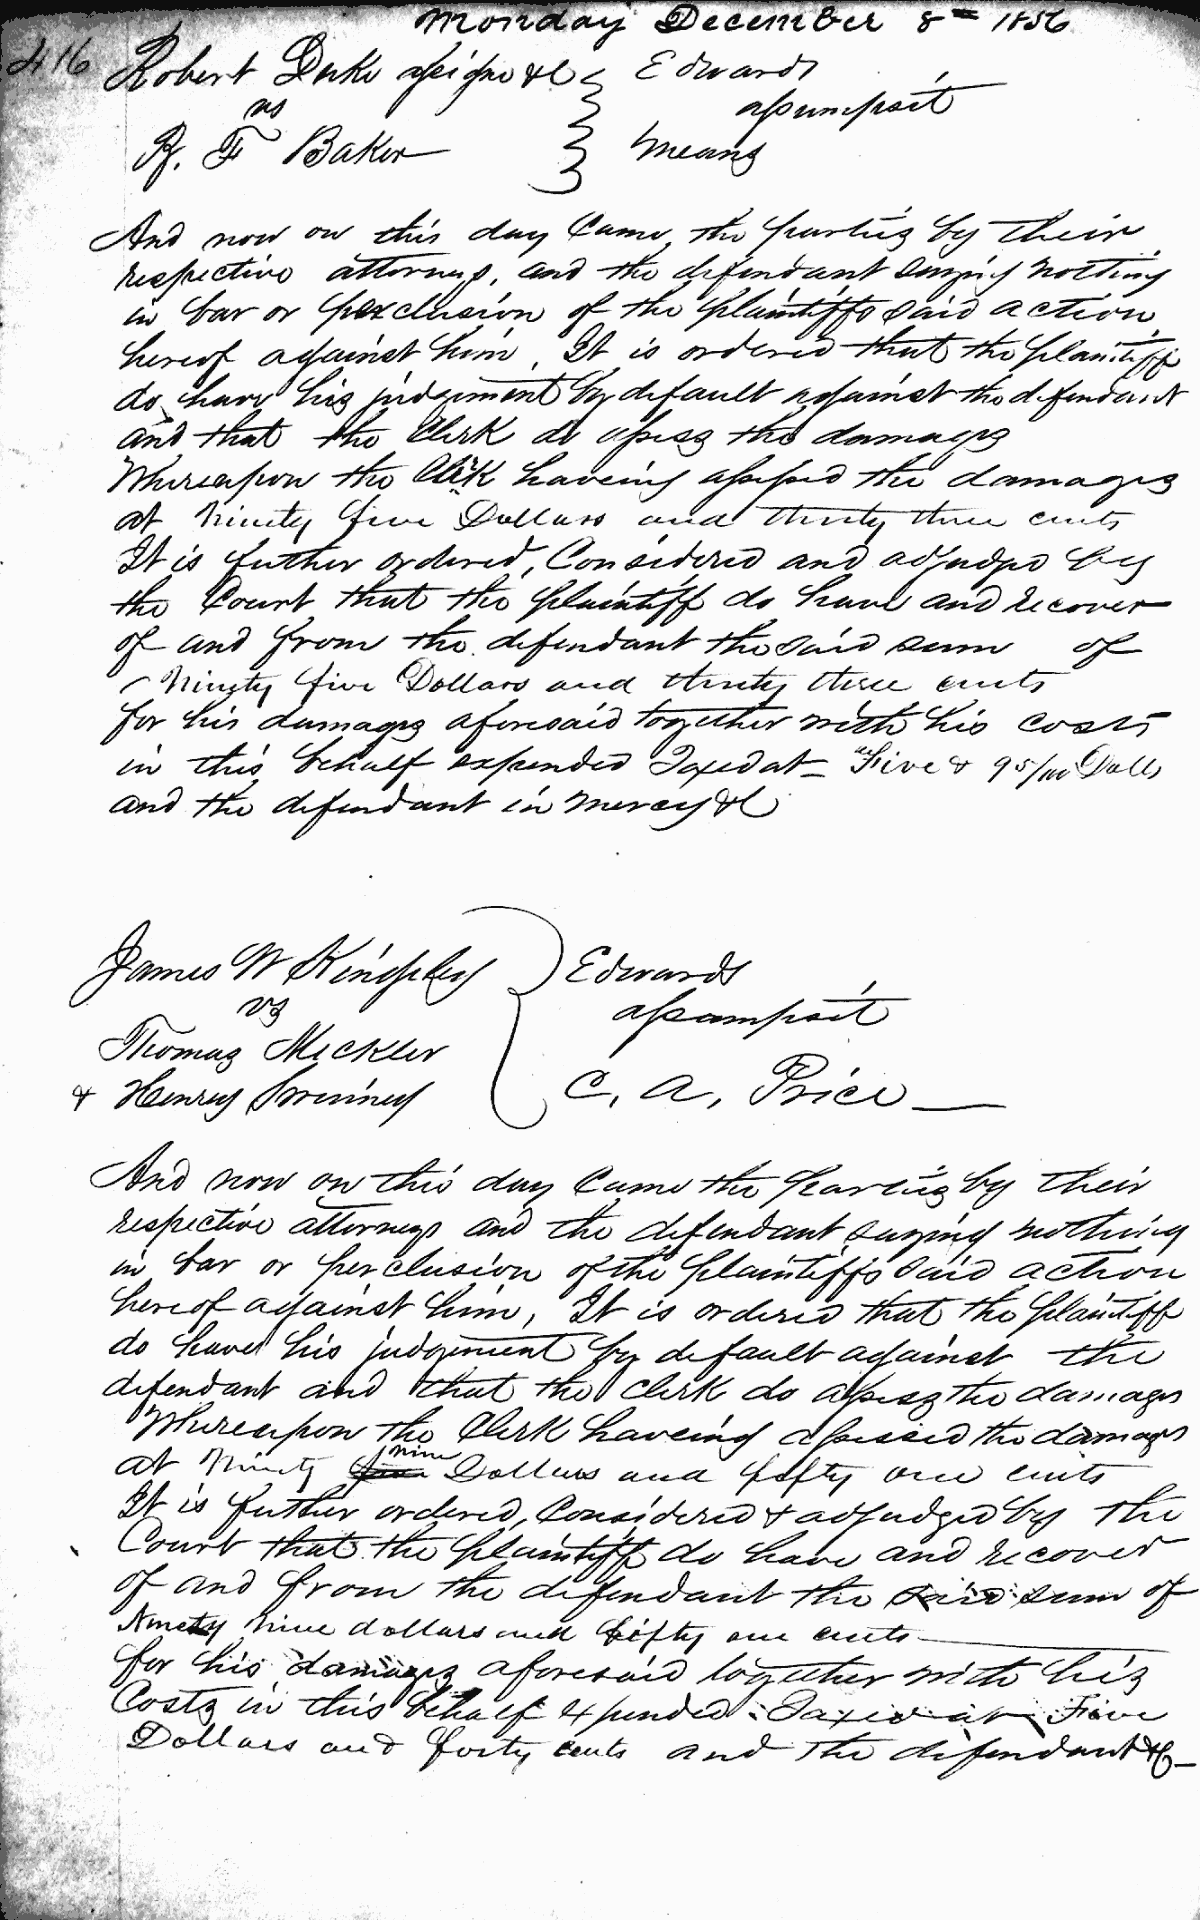 Monday December 8th 1856
416 Robert Duke assignee &c Edwards
vs assumpsit
R. F Baker Means
And now on this day Came, the parties by their
respective attorneys, and the defendant saying nothing
in bar or perclusion of the plaintiffs said action
hereof against him, It is ordered that the plaintiff
do, have his judgement by default against the defendant
and that the Clerk do assess the damages
Whereupon the Clerk haveing assessed the damages
at Ninety five Dollars and thirty three cents
It is futher ordered, Considered and adjudged by
the Court that the plaintiff do have and recover
of and from the defendant the said sum of
Ninety five Dollars and thirty three cents
for his damages aforesaid together with his costs
in this behalf expended Taxed at Five & 95/100 Dolls
and the defendant in mercy &c
James W Kingsley Edwards
vs assumpsit
Thomas Mickler
& Henry Swinney C. A. Price
And now on this day Came the parties by their
respective attorneys and the defendant saying nothing
in bar or perclusion of the plaintiffs said action
hereof against him, It is ordered that the plaintiff
do have his judgement by default against the
defendant and that the clerk do assess the damages
Whereupon the Clerk haveing assessed the damages
at Ninety five nine Dollars and fifty one cents
It is futher ordered, Considered & adjudged by the
Court that the plaintiff do have and recover
of and from the defendant the said sum of
Ninety nine dollars and fifty one cents
for his damages aforesaid together with his
Costs in this behalf expended Taxed at Five
Dollars and forty cents and the defendant &c